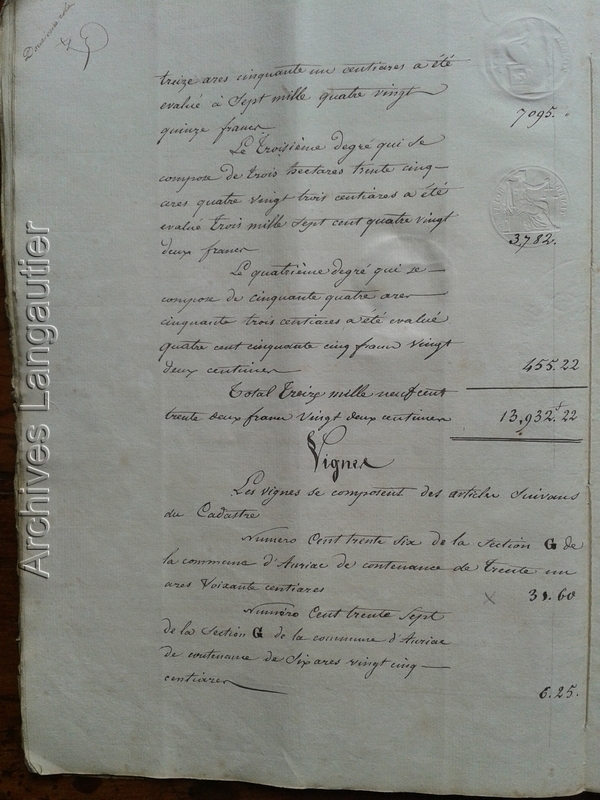 treize ares cinquante un centiares a été
evalué à Sept mille quatre vingt
quinze francs
7095.
Le Troisième degré qui se
compose de trois hectares trente cinq
ares quatre vingt trois centiares a été
evalué trois mille Sept cent quatre vingt
deux francs
3,782.
Le quatrième degré qui se
compose de cinquante quatre ares
cinquante trois centiares a été evalué
quatre cent cinquante cinq francs vingt
deux centimes
455.22
Total Treize mille neuf cent
trente deux francs vingt deux centimes
13,932.22
Vignes
Les vignes se composent des articles suivans
du Cadastre
Numero Cent trente Six de la Section G de
la commune d'Auriac de contenance de trente un
ares Soixante centiares
31.60
Numéro Cent trente Sept
de la Section G de la commune d'Auriac
de contenance de Six ares vingt cinq
centiares
6.25.
Archives Langautier